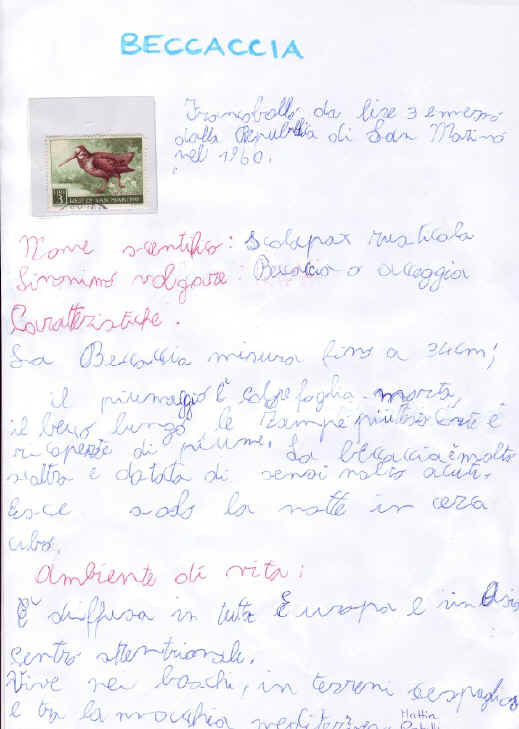 BECCACCIA
Francobollo da lire 3 emesso
dalla Repubblica di San Marino
nel 1960.
3
REP. DI SAN MARINO
Nome scentifico: Scolapax rusticola
Sinonimo volgare: Beccaccia o acceggia
Caratteristiche.
La Beccaccia misura fino a 34cm;
il piumaggio è colore foglia-morta,
il becco lungo le zampe piuttosto corte e
ricoperte di piume. La beccaccia è molto
scaltra e dotata di sensi molto acuti.
Esce solo la notte in cerca
cibo.
Ambiente di vita:
È diffusa in tutta Europa e in Asia
centro settentrionale.
Vive nei boschi, in terreni cespugliosi
e tra la macchia mediterranea
Mattia